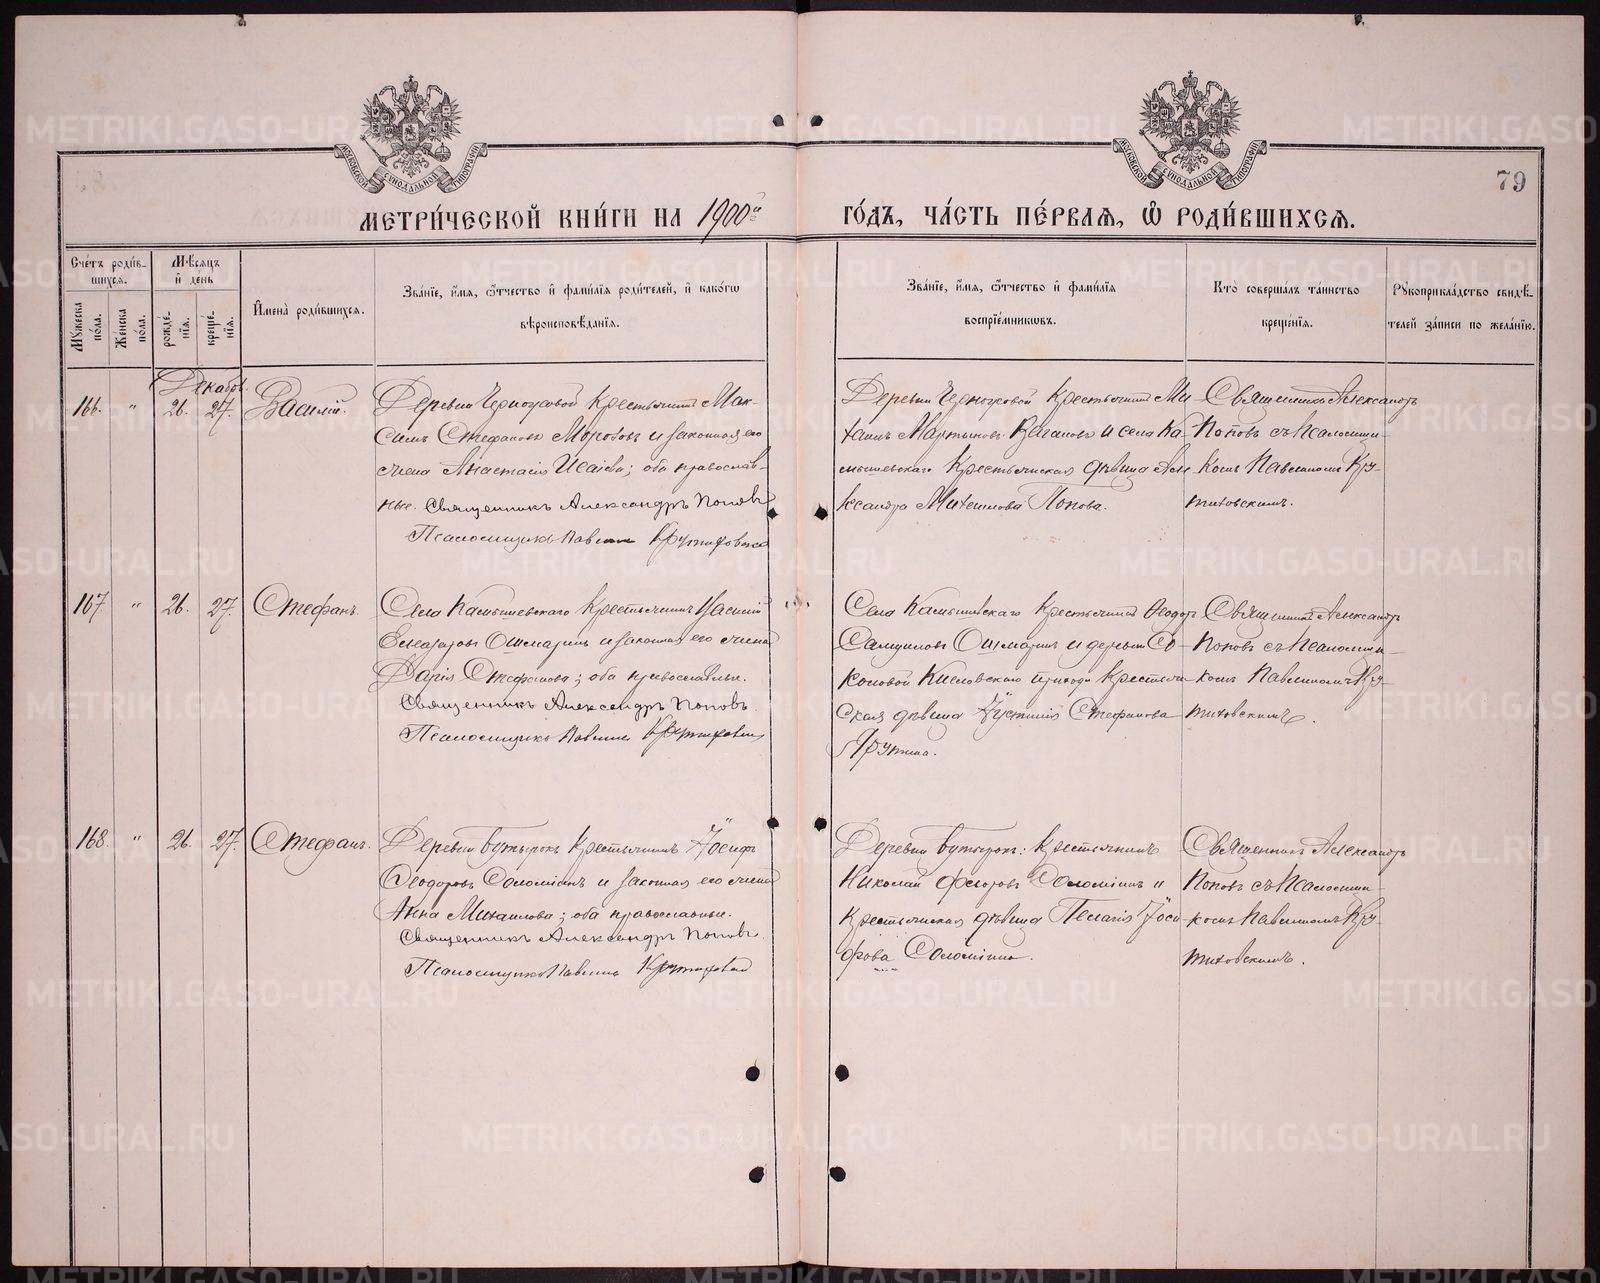 79
МЕТРИ́ЧЕСКОЙ КНИ́ГИ НА 1900й ГО́ДЪ, ЧА́СТЬ ПЕ́РВАѦ, Ѽ РОДИ́ВШИХСѦ.
Сче́тъ роди́в-
шихсѧ.
Мꙋжеска по́ла.
Же́нска по́ла.
Мѣсѧцъ
и҆ де́нь
рожде́-
нїѧ.
креще́-
нїѧ.
И҆мена̀ роди́вшихсѧ.
Зва́нїе, и҆́мѧ, ѻ҆́тчество и҆ фами́лїѧ роди́телей, и҆ како́гѡ
вѣроисповѣ́данїѧ.
Зва́нїе, и҆́мѧ, ѻ҆́тчество и҆ фами́лїѧ
воспрїе́мниковъ.
Кто̀ соверша́лъ та́инство
креще́нїѧ.
Рꙋкоприкла́дство свидѣ́-
телей за́писи по жела́нїю.
Декабрь
166. " 26. 27. Василій.
Деревни Черноусовой крестьянинъ Мак-
симъ Стефановъ Морозовъ и законная его
жена Анастасія Исаіева; оба православ-
ные. Священникъ Александръ Поповъ
Псаломщикъ Павлинъ Крутиховскій
Деревни Черноусовой крестьянинъ Ми-
хаилъ Мартыновъ Вагановъ и села Ка-
мышевскаго крестьянская дѣвица Але-
ксандра Михаилова Попова.
Священникъ Александръ
Поповъ съ Псаломщи-
комъ Павлиномъ Кру-
тиховскимъ.
167. " 26. 27. Стефанъ.
Села Камышевскаго крестьянинъ Василій
Елеазаровъ Ошмаринъ и законная его жена
Дарія Стефанова; оба православные.
Священникъ Александръ Поповъ.
Псаломщикъ Павлинъ Крутиховскій
Села Камышевскаго крестьянинъ Ѳеодоръ
Самуиловъ Ошмаринъ и деревни Со-
коловой Кисловскаго прихода крестьян-
ская дѣвица Іустинія Стефанова
Священникъ Александръ
Поповъ съ Псаломщи-
комъ Павлиномъ Кру-
тиховскимъ.
168. " 26. 27. Стефанъ.
Деревни Бутырокъ крестьянинъ Іосифъ
Ѳеодоровъ Соломіинъ и законная его жена
Анна Михаилова; оба православные.
Священникъ Александръ Поповъ.
Псаломщикъ Павлинъ Крутиховскій
Деревни Бутырокъ: крестьянинъ
Николай Ѳеодоровъ Соломіинъ и
крестьянская дѣвица Пелагія Іоси-
фова Соломіина.
Священникъ Александръ
Поповъ съ Псаломщи-
комъ Павлиномъ Кру-
тиховскимъ.
METRIKI.GASO-URAL.RU